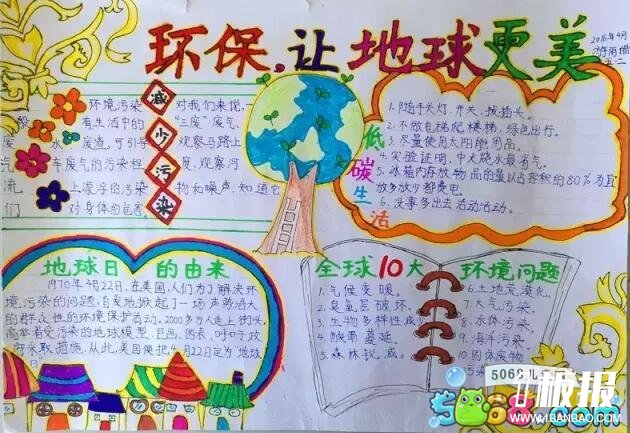 环保，让地球更美
2016年4月
减少污染
环境污染 对我们来说，一
般 有生活中的 "三废"废气、
废 水、废渣，可引导 观察马路上
汽 车废气的污染程 度，观察河
流 上漂浮的污染 物和噪声，知道它
们 对身体的危害。
低碳生活
1. 随手关灯、开关、拔插头。
2. 不做电梯爬楼梯，绿色出行。
3. 尽量使用太阳能用品。
4. 实验证明，中火烧水最省气。
5. 冰箱内存放物品的量以占容积的80%为宜
放多放少都费电。
6. 没事多出去活动活动。
地球日的由来
1970年4月22日，在美国，人们为了解决环
境污染的问题，自发地掀起了一场声势浩大
的群众性的环境保护运动。2000多万人走上街头，
高举着受污染的地球模型、巨画、图表，呼吁政
府采取措施。从此，美国便把4月22日定为"地球
日"
全球10大环境问题
1. 气候变暖。
2. 臭氧层破坏。
3. 生物多样性减少
4. 酸雨蔓延
5. 森林锐减。
6. 土地荒漠化。
7. 大气污染。
8. 水体污染
9. 海洋污染
10. 固体废物
污染
506
板报
5068.com
WWW.1BANBAO.COM